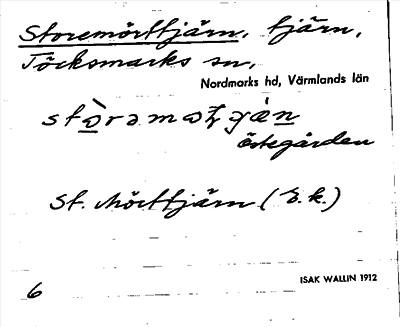 Storemörttjärn, tjärn,
Töcksmarks sn,
Nordmarks hd, Värmlands län
Östegården
St. Mörttjärn (E.k.)
ISAK WALLIN 1912
6